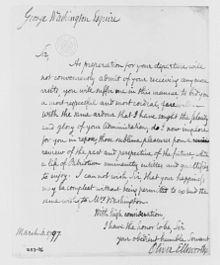 George Washington Esquire
Sir,
As preparation for your departure will
not conveniently admit of your receiving any more
visits, you will suffer me in this manner to bid you
a most respectful and most cordial farewell
with the same ardour that I have sought the felicity
and glory of your Administration, do I now implore
for you in repose, those sublime pleasures
review of the past and prospective of the future,
a life of Patriotism eminently entitles and
to enjoy. I can not wish Sir, that your happiness
may be compleat without being permitted to extend the
same wish to Mrs Washington.
With high consideration,
I have the honor to be, Sir
your obedient humble Servant
March 97.
Oliver Ellsworth